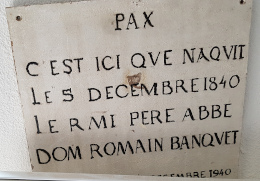 PAX
C'EST ICI QVE NAQVIT
LE 5 DECEMBRE 1840
LE RMI PERE ABBE
DOM ROMAIN BANQVET
DECEMBRE 1940